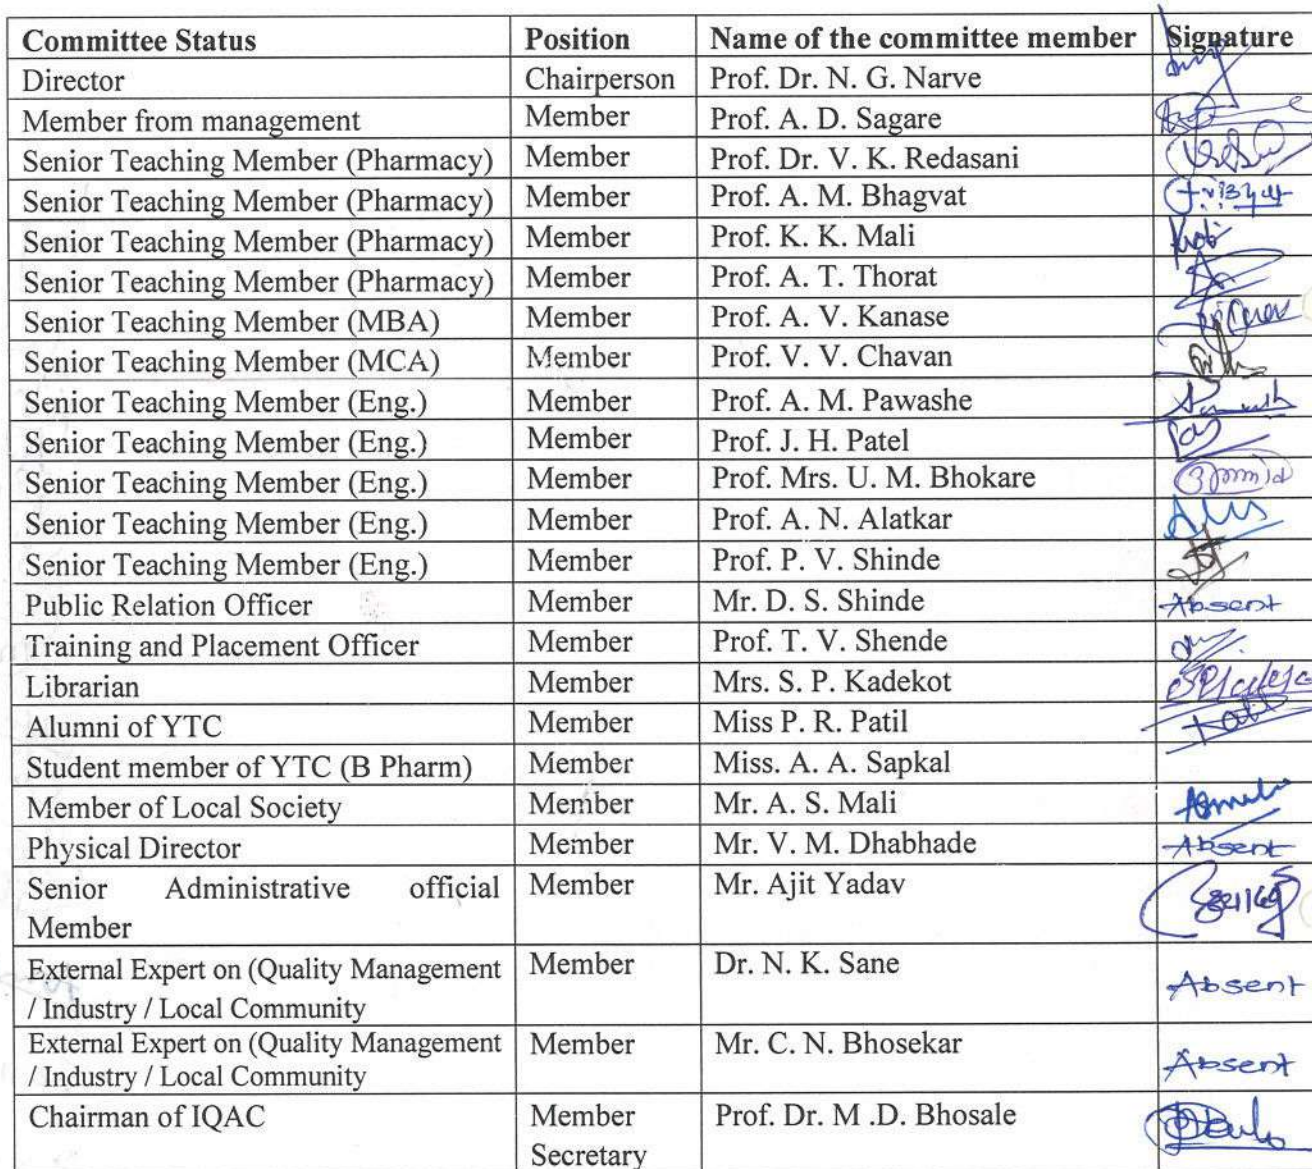 Committee Status Position Name of the committee member Signature
Director Chairperson Prof. Dr. N. G. Narve
Member from management Member Prof. A. D. Sagare
Senior Teaching Member (Pharmacy) Member Prof. Dr. V. K. Redasani
Senior Teaching Member (Pharmacy) Member Prof. A. M. Bhagvat
Senior Teaching Member (Pharmacy) Member Prof. K. K. Mali
Senior Teaching Member (Pharmacy) Member Prof. A. T. Thorat
Senior Teaching Member (MBA) Member Prof. A. V. Kanase
Senior Teaching Member (MCA) Member Prof. V. V. Chavan
Senior Teaching Member (Eng.) Member Prof. A. M. Pawashe
Senior Teaching Member (Eng.) Member Prof. J. H. Patel
Senior Teaching Member (Eng.) Member Prof. Mrs. U. M. Bhokare
Senior Teaching Member (Eng.) Member Prof. A. N. Alatkar
Senior Teaching Member (Eng.) Member Prof. P. V. Shinde
Public Relation Officer Member Mr. D. S. Shinde Absent
Training and Placement Officer Member Prof. T. V. Shende
Librarian Member Mrs. S. P. Kadekot
Alumni of YTC Member Miss P. R. Patil
Student member of YTC (B Pharm) Member Miss. A. A. Sapkal
Member of Local Society Member Mr. A. S. Mali
Physical Director Member Mr. V. M. Dhabhade Absent
Senior Administrative official Member Mr. Ajit Yadav
Member
External Expert on (Quality Management Member Dr. N. K. Sane Absent
/ Industry / Local Community
External Expert on (Quality Management Member Mr. C. N. Bhosekar Absent
/ Industry / Local Community
Chairman of IQAC Member Prof. Dr. M .D. Bhosale
Secretary